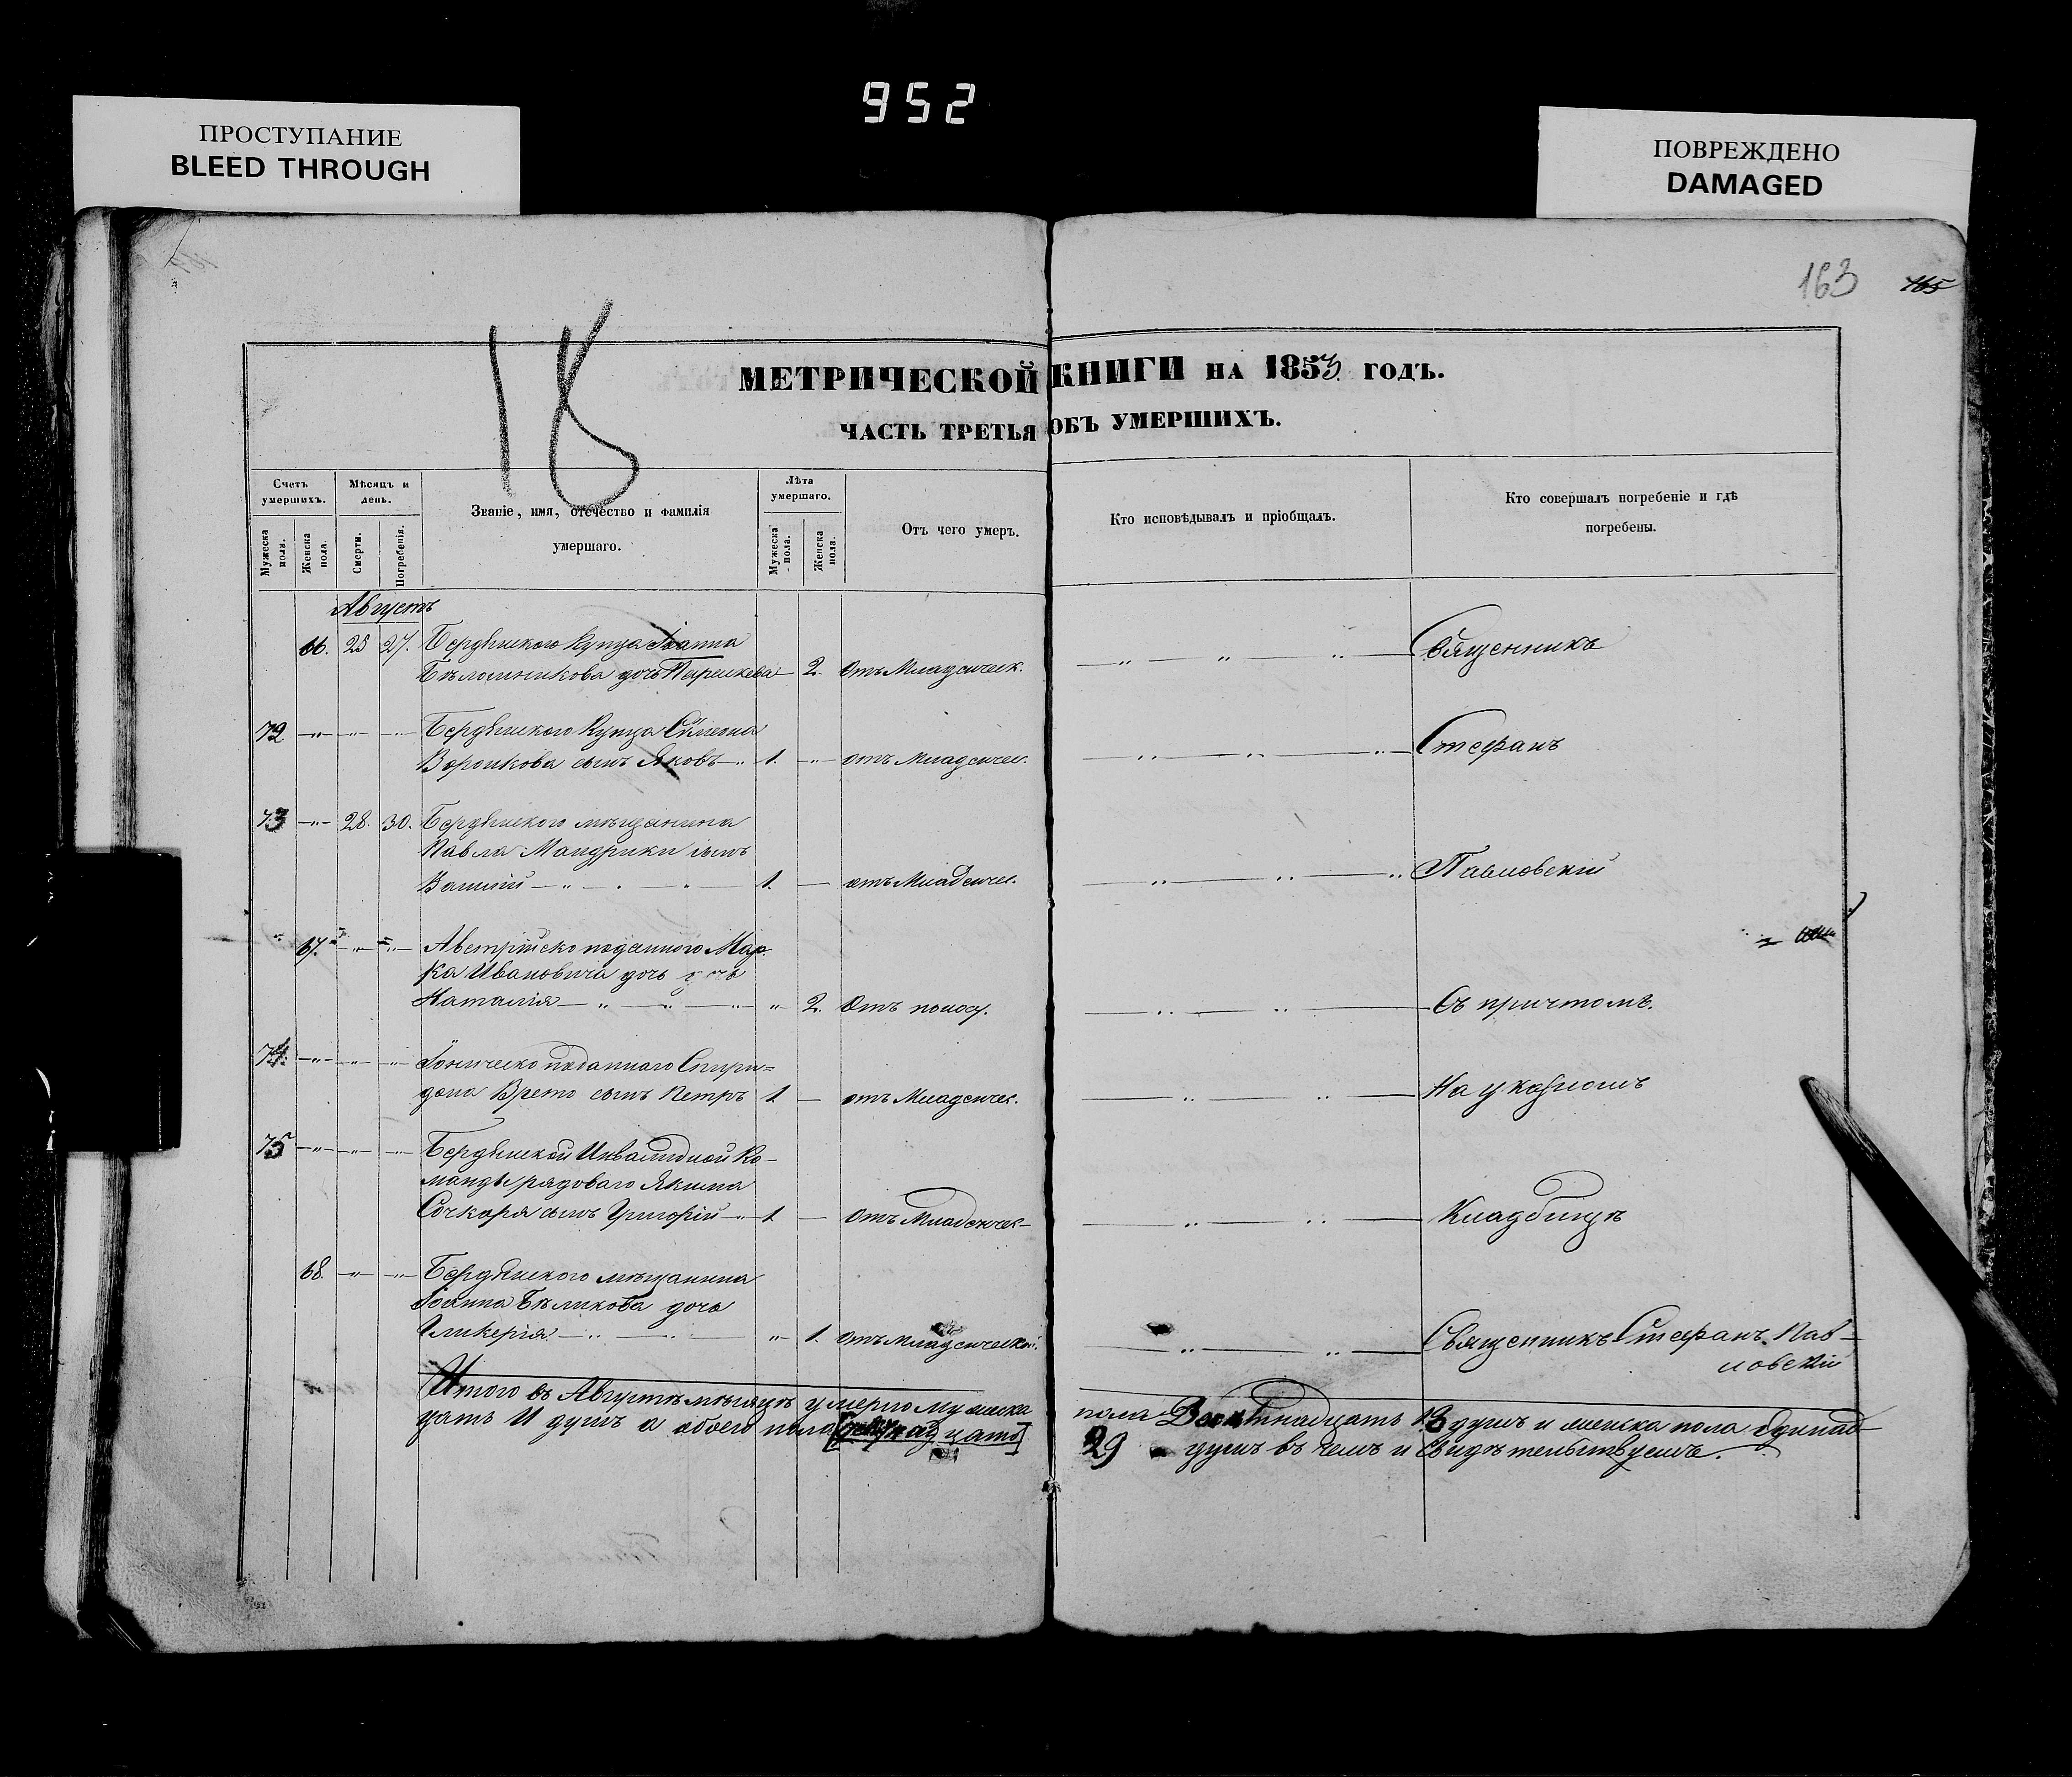 952
ПРОСТУПАНИЕ
BLEED THROUGH
ПОВРЕЖДЕНО
DAMAGED
163 165
18
МЕТРИЧЕСКОЙ КНИГИ НА 1853 ГОДЪ.
ЧАСТЬ ТРЕТЬЯ ОБЪ УМЕРШИХЪ.
Счетъ умершихъ.
Мужеска пола.
Женска пола.
Мѣсяцъ и день.
Смерти.
Погребенія.
Званіе, имя, отечество и фамилія
умершаго.
Лѣта умершаго.
Мужеска пола.
Женска пола.
Отъ чего умеръ.
Кто исповѣдывалъ и пріобщалъ.
Кто совершалъ погребеніе и гдѣ
погребены.
Августъ
66. 25 27. Бердянскаго Купца Іоанна
дочь Параскева 2. Отъ Младенческ. Священникъ
72 Бердянскаго Купца Сѵмеона
Воронкова сынъ Яковъ 1. отъ Младенчес. Стефанъ
73 28. 30. Бердянскаго мѣщанина
Павла Мандрики сынъ
Василій 1. отъ Младенчес. Павловскій
67. Австрійско подданного Мар-
ка Ивановича дочь дочь
Наталія 2. Отъ поносу. Съ причтомъ.
74. Іоническо подданного Спири=
дона Врето сынъ Петръ 1. отъ Младенчес. На
75 Бердянской Инвалидной Ко-
манды рядоваго Якима
Сочкаря сынъ Григорій 1 Отъ Младенчес- Кладбищѣ
68. Бердянскаго мѣщанина
Іоанна Бѣликова дочь
Гликерія 1. отъ Младенческой. Священникъ Стефанъ Пав-
ловскій
Итого въ Августѣ мѣсяцѣ умерло мужеска пола 18 душъ и женска пола Одинад-
цать 11 душъ а обоего пола 29 душъ въ чемъ и свидѣтельствуемъ.